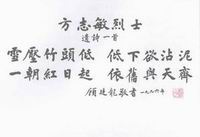 方志敏烈士
遺詩一首
雪壓竹頭低 低下欲沾泥
一朝紅日起 依舊與天齊
顧廷龍敬書 一九九六年